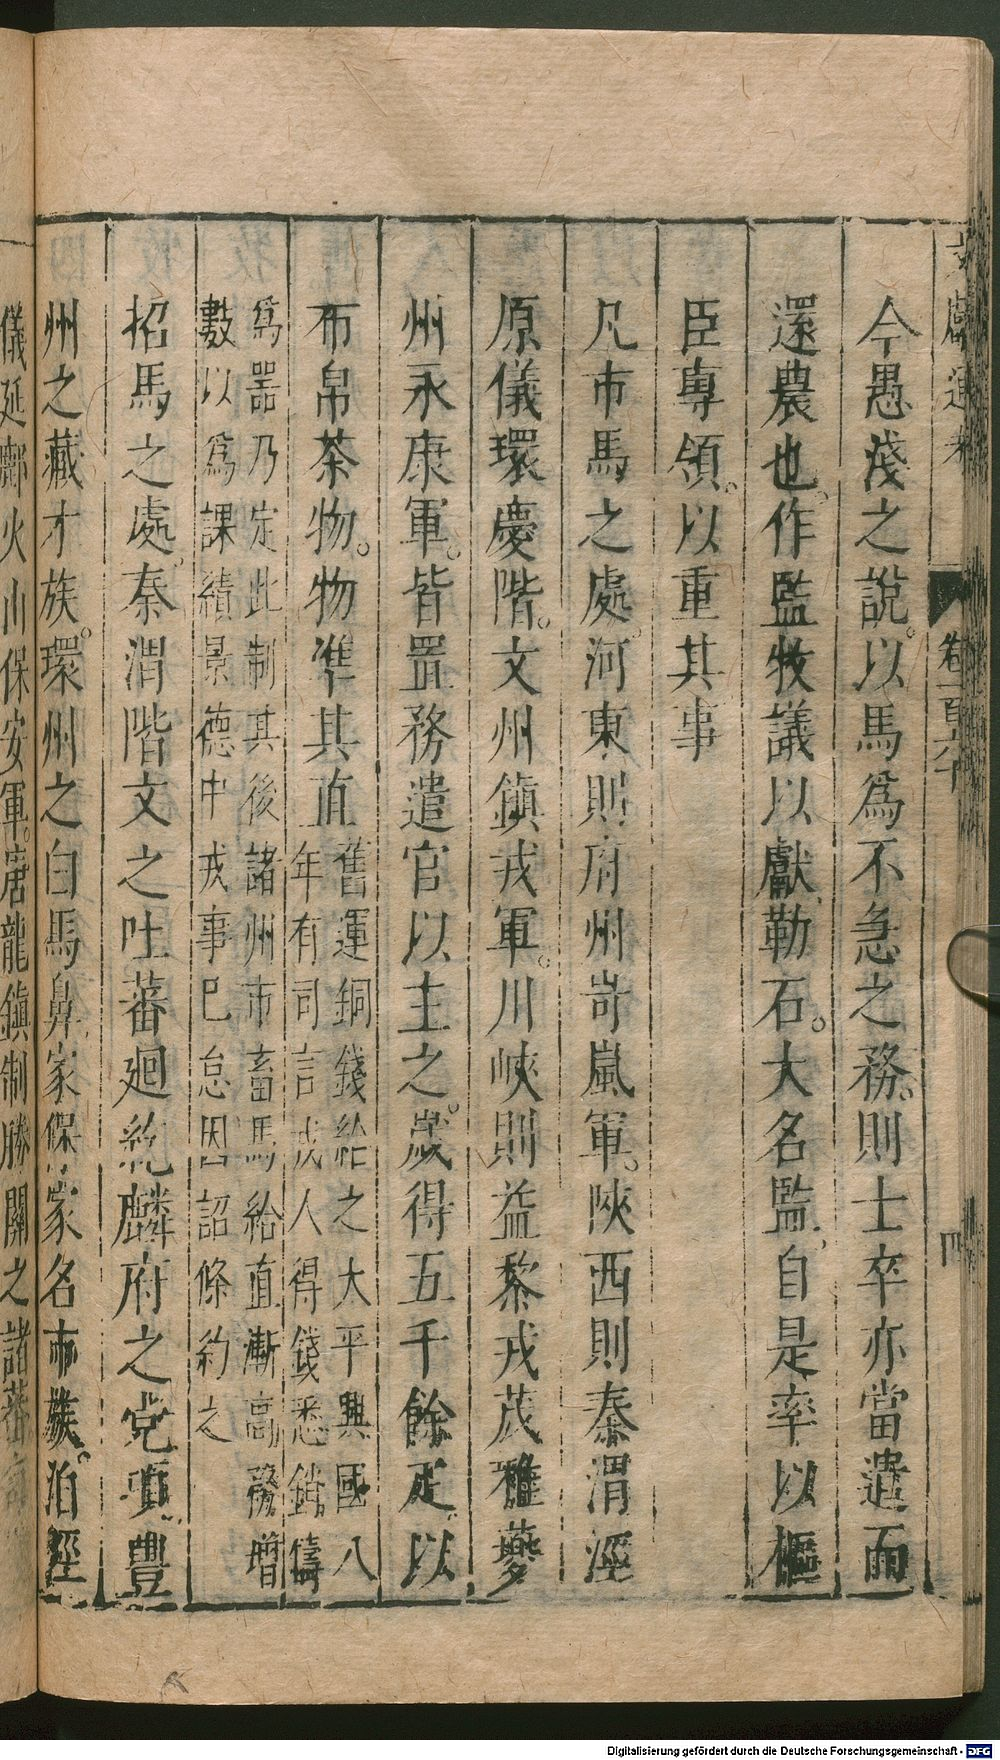 文獻通考 卷一百六十 四
今愚淺之說。以馬爲不急之務。則士卒亦當遣而
還農也。作監牧議以獻勒石。大名監自是率以樞
臣專領。以重其事
凡市馬之處。河東則府州岢嵐軍。陝西則秦渭涇
原儀環慶階。文州鎮戎軍。川峽則益黎戎茂雅夔
州永康軍。皆置務遣官以主之。歲得五千餘疋。以
布帛茶物。物準其直舊運銅錢給之大平興國八
年有司言戎人得錢悉銷鑄
爲器乃定此制其後諸州市畜馬給直漸高務增
數以爲課績景德中戎事巳怠因詔條約之
招馬之處。秦渭階文之吐蕃廻紇麟府之党項豐
州之藏才族。環州之白馬鼻家保家名市族。洎涇
儀延鄜火山保安軍。唐龍鎮制勝關之諸蕃
Digitalisierung gefördert durch die Deutsche Forschungsgemeinschaft - DFG